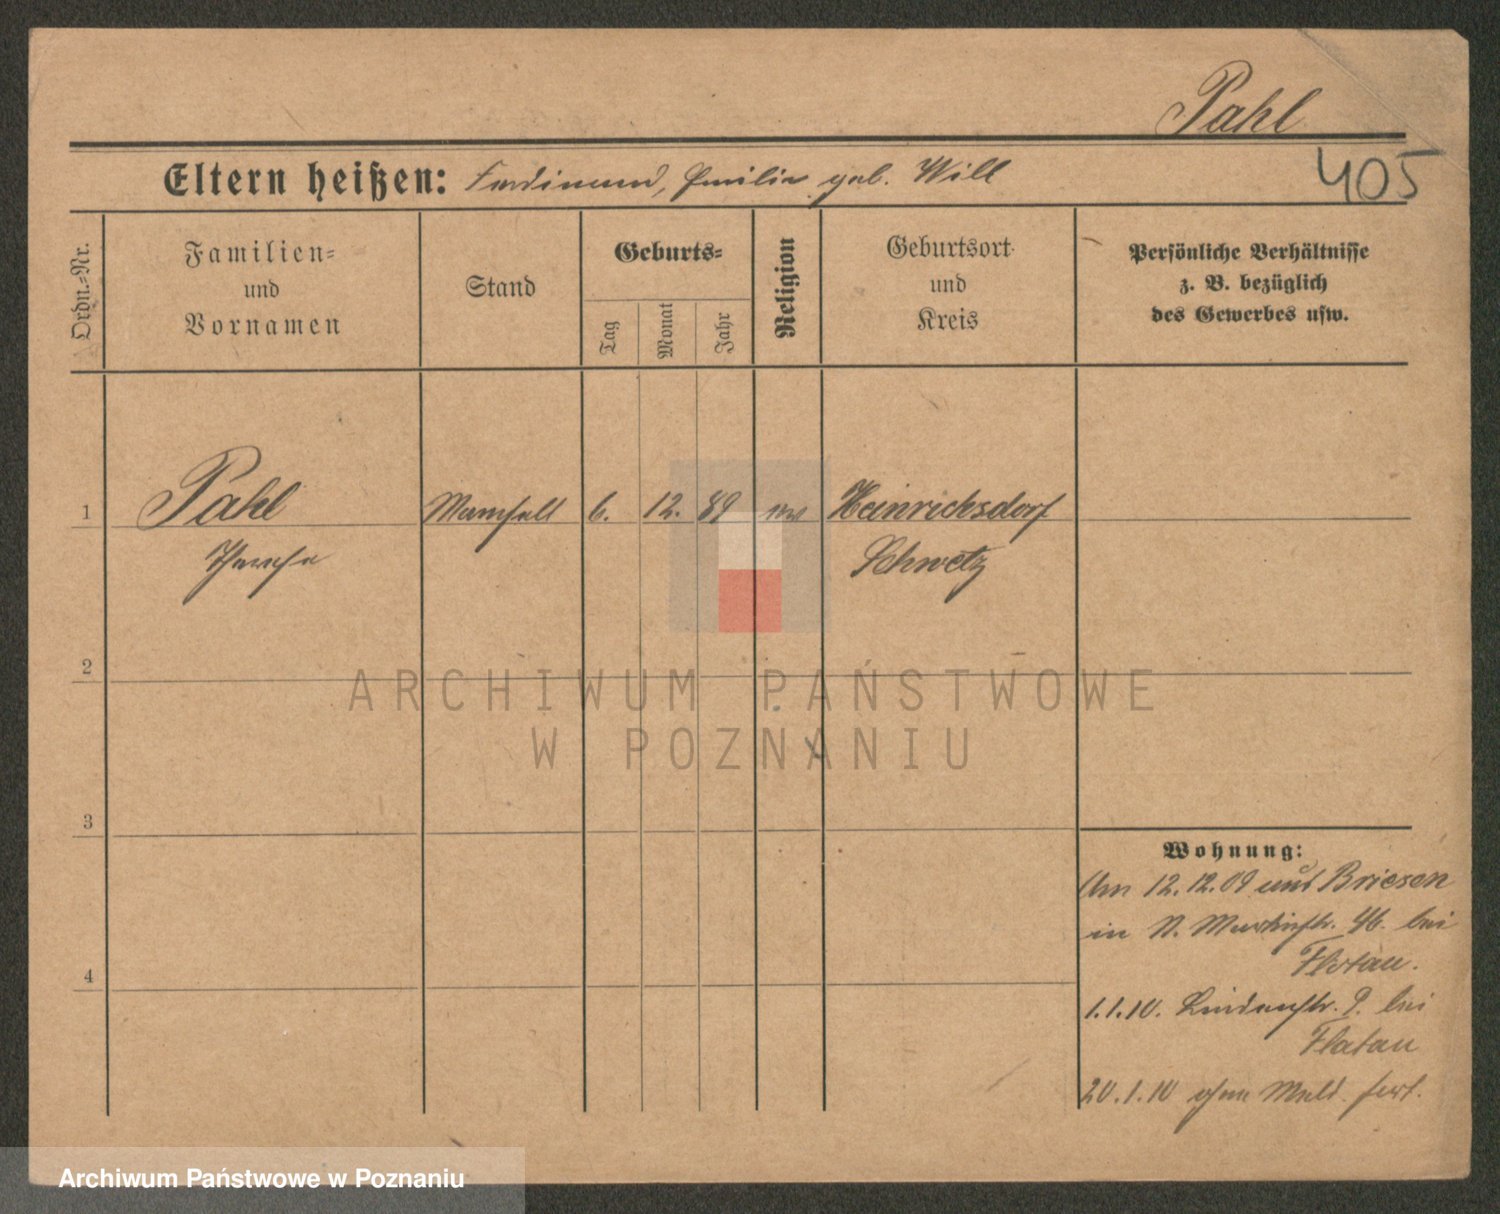 Pahl
405
Eltern heißen: Ferdinand, Emilie geb. Will
Ordn.-Nr.
Familien-
und
Vornamen
Stand
Geburts-
Tag
Monat
Jahr
Religion
Geburtsort
und
Kreis
Persönliche Verhältnisse
z. B. bezüglich
des Gewerbes usw.
1
Pahl
Mamsell
6.
12.
89
ev
Heinrichsdorf
Schwetz
2
ARCHIWUM PAŃSTWOWE
W POZNANIU
3
4
Wohnung:
Am 12.12.09 aus Briesen
in St. Martinstr. 46. bei
Flatau.
1.1.10. Lindenstr. 9. bei
Flatau
20.1.10 ohne Meld. fort.
Archiwum Państwowe w Poznaniu